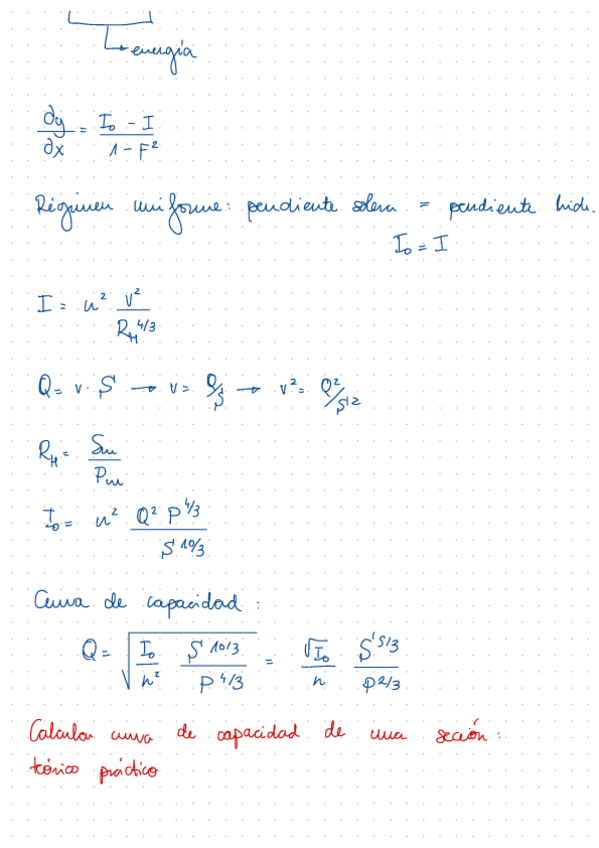 energía
∂y/∂x = (I₀ - I)/(1 - F²)
Régimen uniforme: pendiente solera = pendiente hidr.
I₀ = I
I = n² v²/R_H^4/3
Q = v · S → v = Q/S → v² = Q²/S²
R_H = Sm/Pm
I₀ = n² Q² P^4/3 / S^10/3
Curva de capacidad:
Q = √(I₀/n² S^10/3/P^4/3) = √I₀/n S^5/3/P^2/3
Calcular curva de capacidad de una sección:
teórico práctico